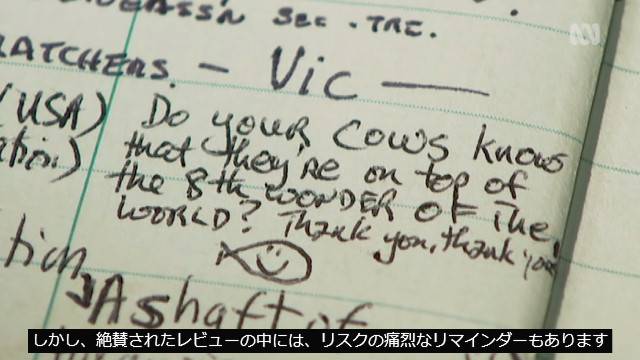 SEC. TRE.
— Vic —
(USA) Do your cows know
that they're on top of
the 8th WONDER OF THE
WORLD? Thank you, thank you
A shaft of
しかし、絶賛されたレビューの中には、リスクの痛烈なリマインダーもあります